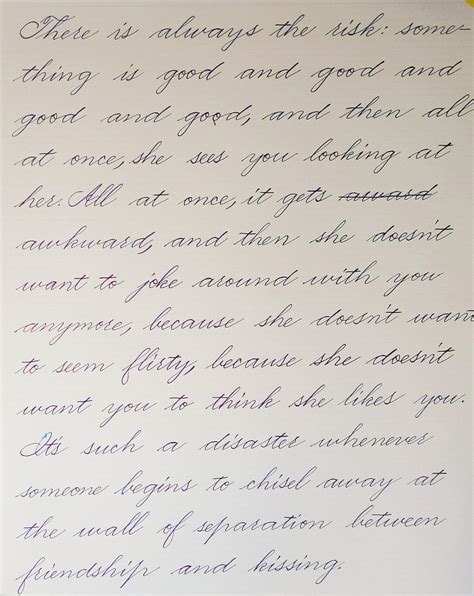 There is always the risk: some-
thing is good and good and
good and good, and then all
at once, she sees you looking at
her. All at once, it gets award
awkward, and then she doesn't
want to joke around with you
anymore, because she doesn't want
to seem flirty, because she doesn't
want you to think she likes you.
It's such a disaster whenever
someone begins to chisel away at
the wall of separation between
friendship and kissing.